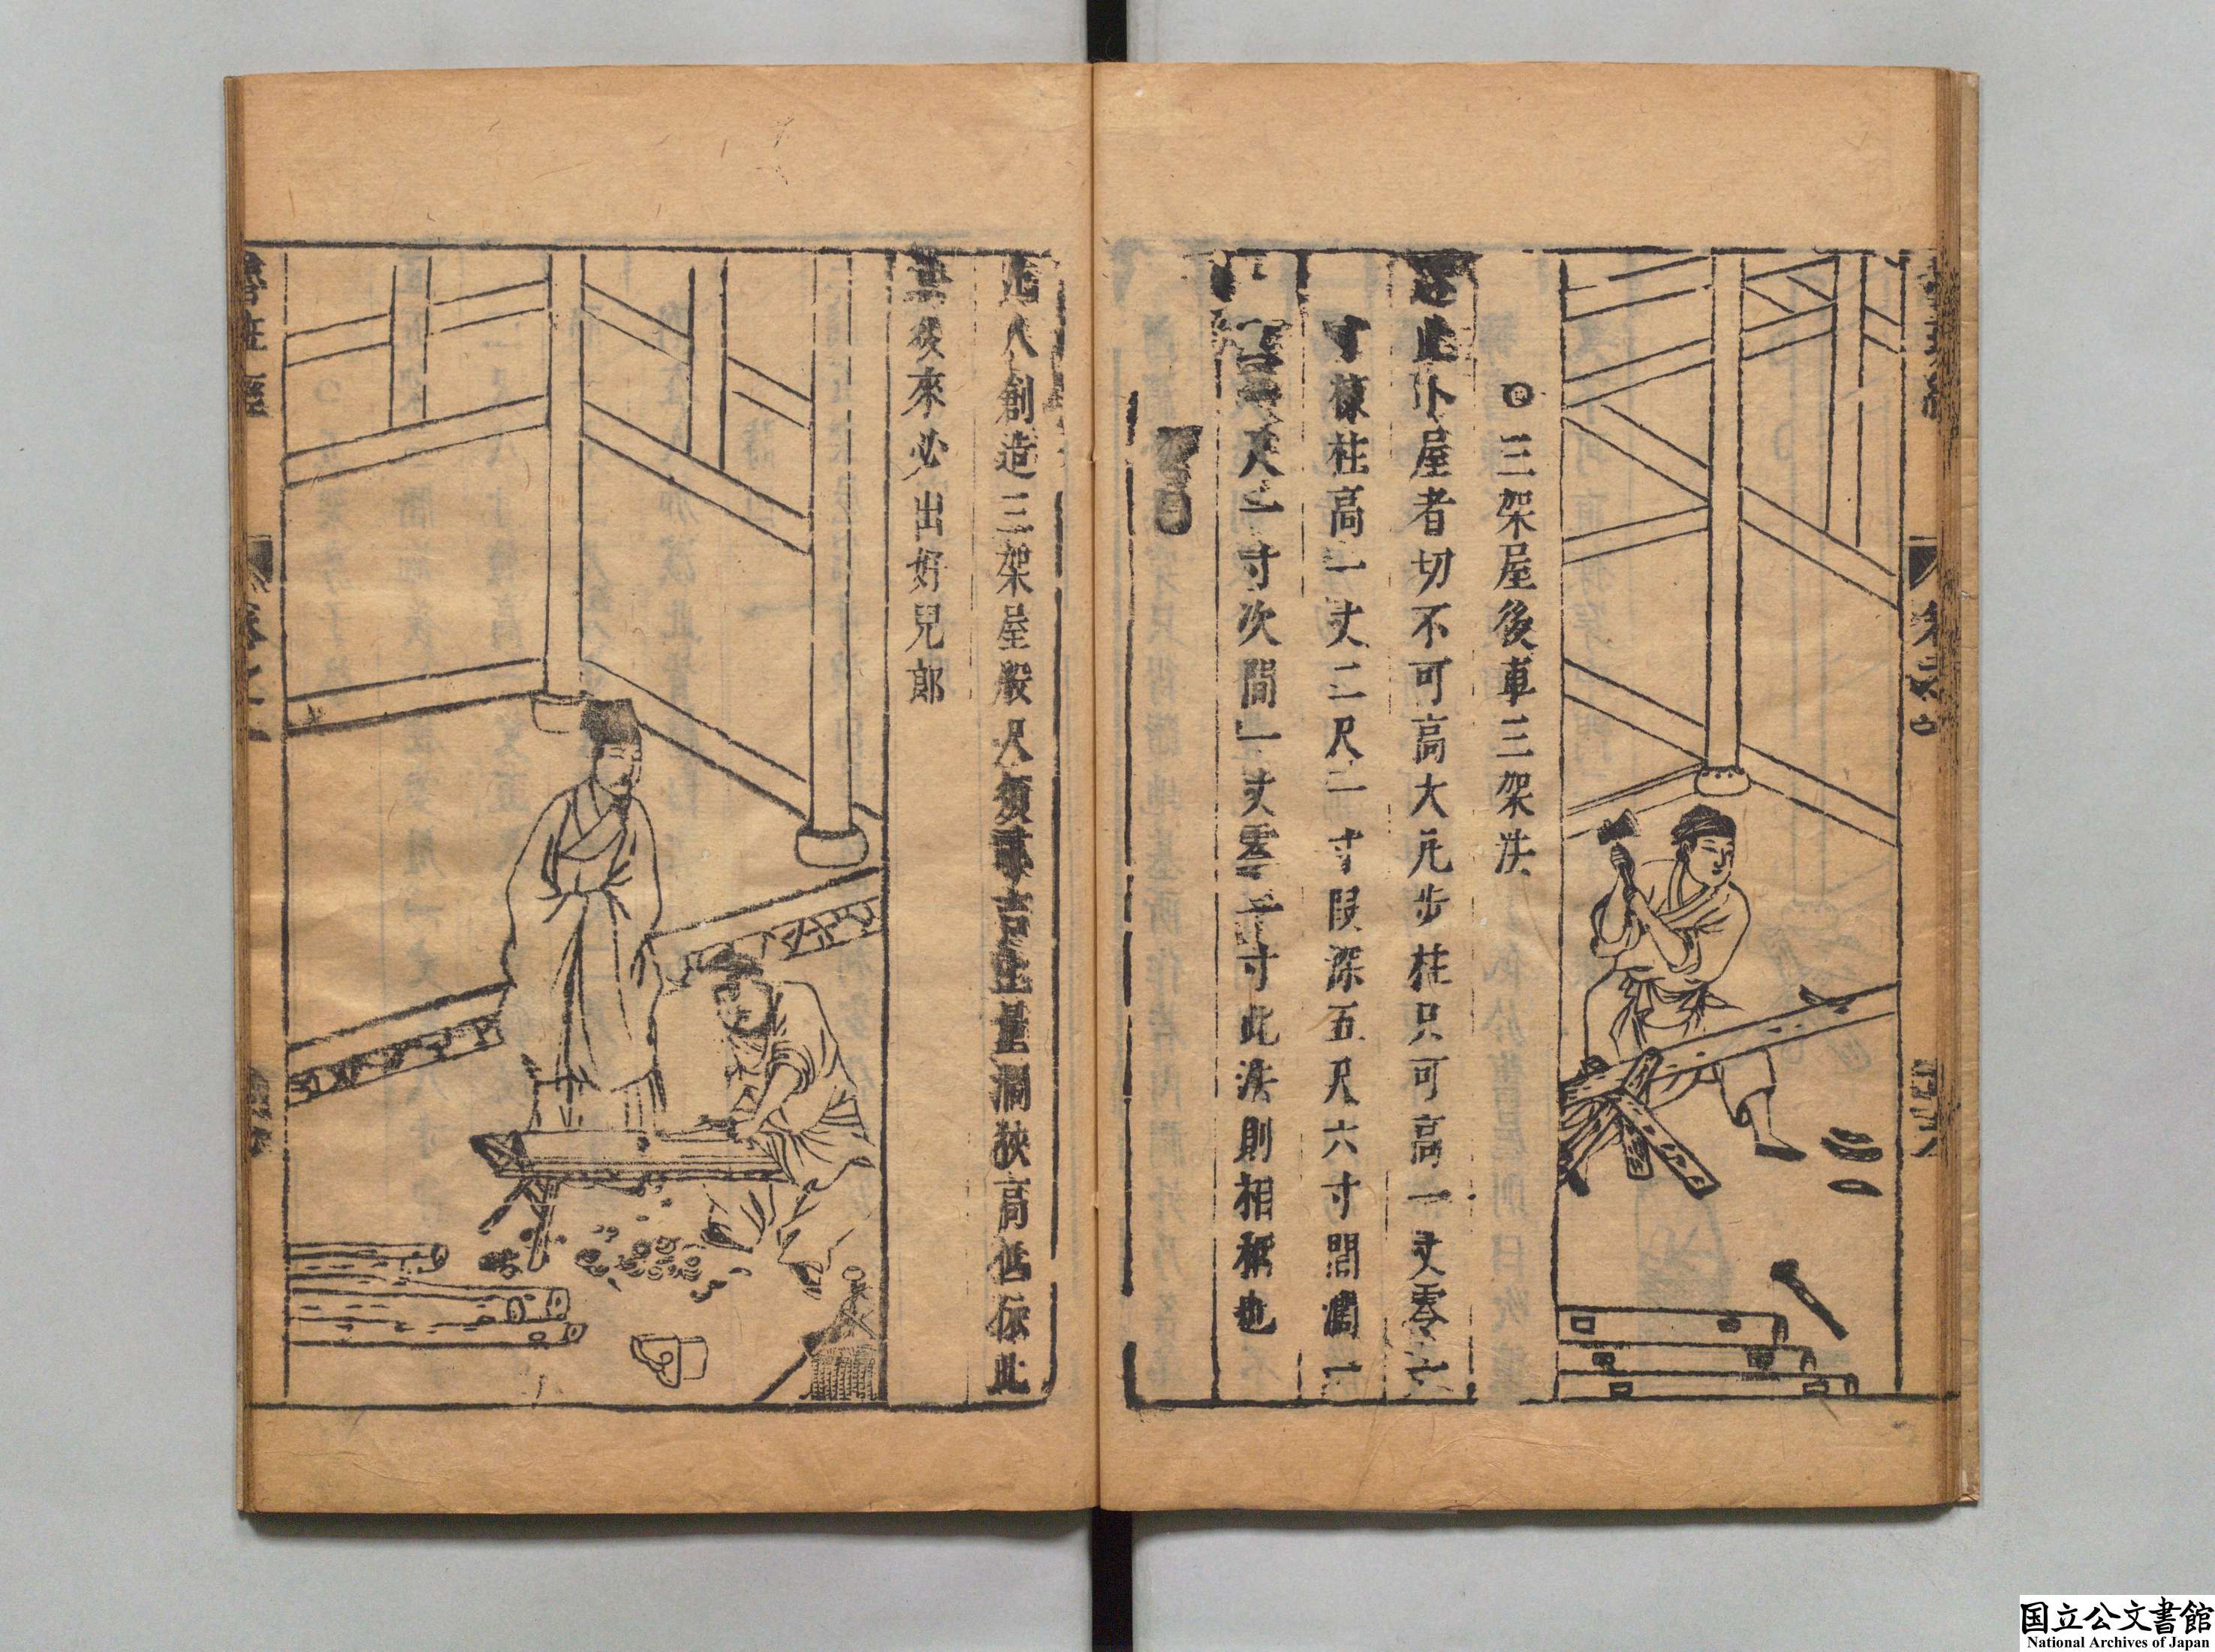 三架屋後車三架法
造此小屋者切不可高大凡步柱只可高一丈零一
寸棟柱高一丈二尺一寸段深五尺六寸間濶一
丈一尺一寸次間一丈零一寸此法則相稱也
詩曰
凡人創造三架屋般尺須尋吉上量濶狹高低依此
法後來必出好兒郎
魯班經
卷之一
国立公文書館
National Archives of Japan